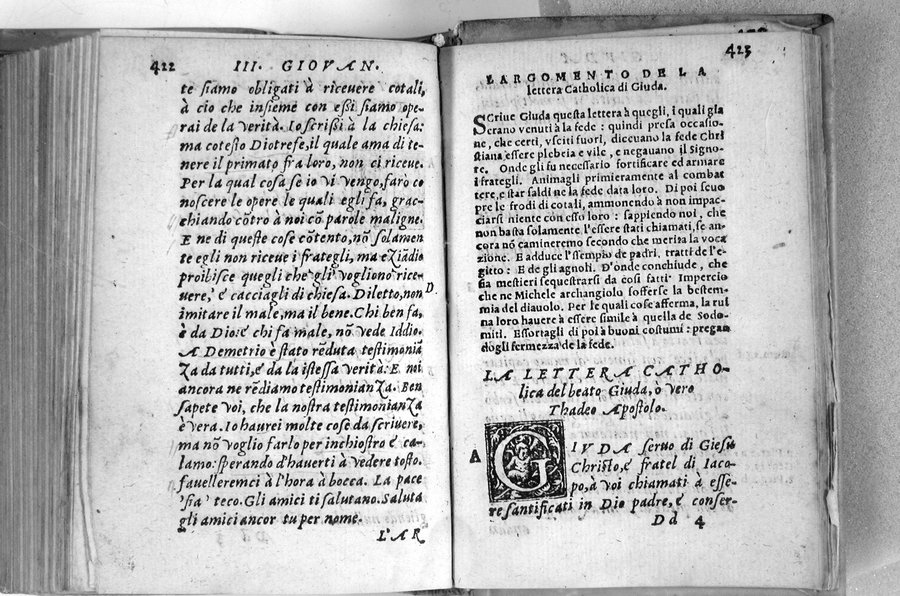 422 III. GIOVAN.
te siamo obligati à ricevere cotali,
à cio che insieme con eßi siamo ope-
rai de la verità. Io scrißi à la chiesa:
ma cotesto Diotrefe, il quale ama di te-
nere il primato fra loro, non ci riceve.
Per la qual cosa se io vi vengo, farò co
noscere le opere le quali egli fa, grac-
chiando cõtro à noi cõ parole maligne.
E ne di queste cose cõtento, nõ solamen
te egli non riceve i frategli, ma eziãdio
proibisce quegli che gli vogliono rice-
vere, é cacciagli di chiesa. Diletto, non
D
imitare il male, ma il bene. Chi ben fa,
è da Dio: é chi fa male, nõ vede Iddio.
A Demetrio è stato rẽduta testimoniã
za da tutti, é da la istessa verità: E noi
ancora ne rẽdiamo testimonianza. Ben
sapete voi, che la nostra testimonianza
è vera. Io haurei molte cose da scrivere,
ma nõ voglio farlo per inchiostro é ca-
lamo: sperando d'haverti à vedere tosto.
favelleremci à l'hora à bocca. La pace
sia teco. Gli amici ti salutano. Saluta
gli amici ancor tu per nome.
L'AR
423
LARGOMENTO DE LA
lettera Catholica di Giuda.
SCrive Giuda questa lettera à quegli, i quali gia
erano venuti à la fede : quindi presa occasio-
ne, che certi, vsciti fuori, dicevano la fede Chri
stiana essere plebeia e vile, e negavano il signo-
re. Onde gli fu necessario fortificare ed armare
i frategli. Animagli primieramente al combat
tere, e star saldi ne la fede data loro. Di poi scuo
pre le frodi di cotali, ammonendo à non impac-
ciarsi niente con esso loro : sappiendo noi, che
non basta solamente l'essere stati chiamati, se an-
cora nõ camineremo secondo che merita la voca
zione. E adduce l'ssempio de padri, tratti de l'e-
gitto : E de gli agnoli. D'onde conchiude, che
sia mestieri sequestrarsi da cosi fatti Impercio
che ne Michele archangiolo sofferse la bestem-
mia del diavolo. Per le quali cose afferma, la rui
na loro havere à essere simile à quella de Sodo-
miti. Essortagli di poi à buoni costumi : pregan
dogli fermezza de la fede.
LA LETTERA CATHO-
lica del beato Giuda, ò vero
Thadeo Apostolo.
A
GIVDA servo di Giesu
Christo, é fratel di Iaco-
po, à voi chiamati à esse-
re santificati in Dio padre, é conser-
Dd 4